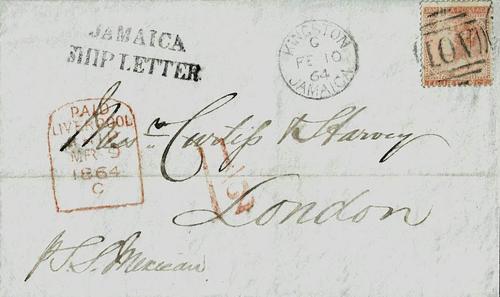 JAMAICA
SHIP LETTER
KINGSTON
C
FE 10
64
JAMAICA
A01
PAID
LIVERPOOL
MR 9
1864
C
Messrs Curtis & Harvey
London
p S.S. Mexican